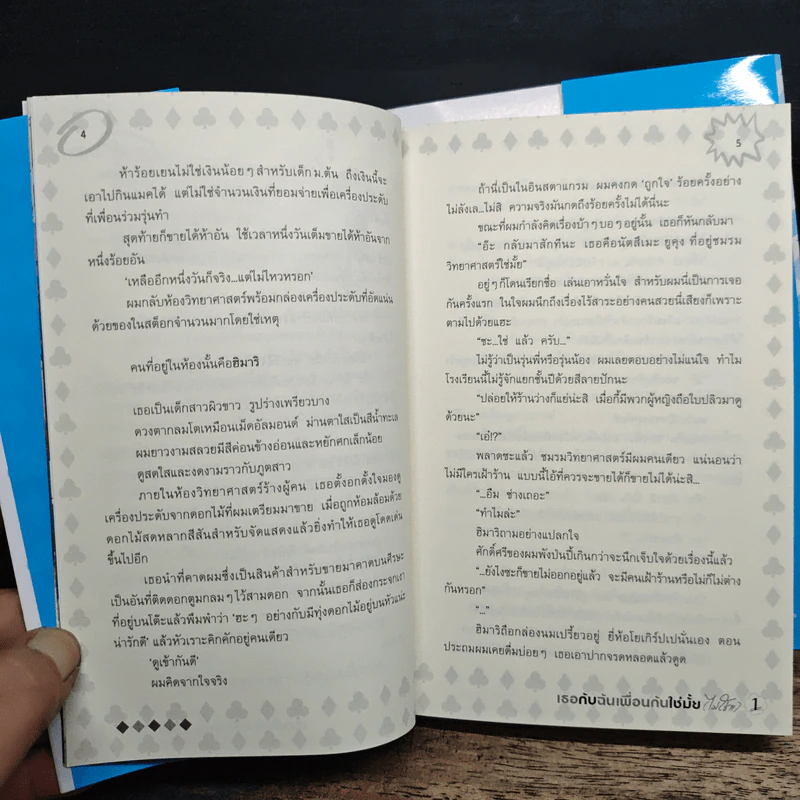 4
ห้าร้อยเยนไม่ใช่เงินน้อยๆ สำหรับเด็ก ม.ต้น ถึงเงินนี้จะ
เอาไปกินแมคได้ แต่ไม่ใช่จำนวนเงินที่ยอมจ่ายเพื่อเครื่องประดับ
ที่เพื่อนร่วมรุ่นทำ
สุดท้ายก็ขายได้ห้าอัน ใช้เวลาหนึ่งวันเต็มขายได้ห้าอันจาก
หนึ่งร้อยอัน
‘เหลืออีกหนึ่งวันก็จริง...แต่ไม่ไหวหรอก’
ผมกลับห้องวิทยาศาสตร์พร้อมกล่องเครื่องประดับที่อัดแน่น
ด้วยของในสต็อกจำนวนมากโดยใช่เหตุ
คนที่อยู่ในห้องนั้นคือฮิมาริ
เธอเป็นเด็กสาวผิวขาว รูปร่างเพรียวบาง
ดวงตากลมโตเหมือนเม็ดอัลมอนด์ ม่านตาใสเป็นสีน้ำทะเล
ผมยาวงามสลวยมีสีค่อนข้างอ่อนและหยักศกเล็กน้อย
ดูสดใสและงดงามราวกับภูตสาว
ภายในห้องวิทยาศาสตร์ร้างผู้คน เธอตั้งอกตั้งใจมองดู
เครื่องประดับจากดอกไม้ที่ผมเตรียมมาขาย เมื่อถูกห้อมล้อมด้วย
ดอกไม้สดหลากสีสันสำหรับจัดแสดงแล้วยิ่งทำให้เธอดูโดดเด่น
ขึ้นไปอีก
เธอนำที่คาดผมซึ่งเป็นสินค้าสำหรับขายมาคาดบนศีรษะ
เป็นอันที่ติดดอกตูมกลมๆ ไว้สามดอก จากนั้นเธอก็ส่องกระจกเงา
ที่อยู่บนโต๊ะแล้วพึมพำว่า ‘ฮะๆ อย่างกับมีทุ่งดอกไม้อยู่บนหัวแน่ะ
น่ารักดี’ แล้วหัวเราะคิกคักอยู่คนเดียว
‘ดูเข้ากันดี’
ผมคิดจากใจจริง
5
ถ้านี่เป็นในอินสตาแกรม ผมคงกด ‘ถูกใจ’ ร้อยครั้งอย่าง
ไม่ลังเล...ไม่สิ ความจริงมันกดถึงร้อยครั้งไม่ได้นี่นะ
ขณะที่ผมกำลังคิดเรื่องบ้าๆ บอๆ อยู่นั้น เธอก็หันกลับมา
“อ๊ะ กลับมาสักทีนะ เธอคือนัตสึเมะ ยูคุง ที่อยู่ชมรม
วิทยาศาสตร์ใช่มั้ย”
อยู่ๆ ก็โดนเรียกชื่อ เล่นเอาหวั่นใจ สำหรับผมนี่เป็นการเจอ
กันครั้งแรก ในใจผมนึกถึงเรื่องไร้สาระอย่างคนสวยนี่เสียงก็เพราะ
ตามไปด้วยแฮะ
“ชะ...ใช่ แล้ว ครับ...”
ไม่รู้ว่าเป็นรุ่นพี่หรือรุ่นน้อง ผมเลยตอบอย่างไม่แน่ใจ ทำไม
โรงเรียนนี้ไม่รู้จักแยกชั้นปีด้วยสีลายปักนะ
“ปล่อยให้ร้านว่างก็แย่น่ะสิ เมื่อกี้มีพวกผู้หญิงถือใบปลิวมาดู
ด้วยนะ”
“เอ๋!?”
พลาดซะแล้ว ชมรมวิทยาศาสตร์มีผมคนเดียว แน่นอนว่า
ไม่มีใครเฝ้าร้าน แบบนี้ไอ้ที่ควรจะขายได้ก็ขายไม่ได้น่ะสิ...
“...อืม ช่างเถอะ”
“ทำไมล่ะ”
ฮิมาริถามอย่างแปลกใจ
ศักดิ์ศรีของผมพังป่นปี้เกินกว่าจะนึกเจ็บใจด้วยเรื่องนี้แล้ว
“...ยังไงซะก็ขายไม่ออกอยู่แล้ว จะมีคนเฝ้าร้านหรือไม่ก็ไม่ต่าง
กันหรอก”
“...”
ฮิมาริถือกล่องนมเปรี้ยวอยู่ ยี่ห้อโยเกิร์ปเปนั่นเอง ตอน
ประถมผมเคยดื่มบ่อยๆ เธอเอาปากจรดหลอดแล้วดูด
เธอกับฉันเพื่อนกันใช่มั้ย (ไม่ใช่หรอ) 1